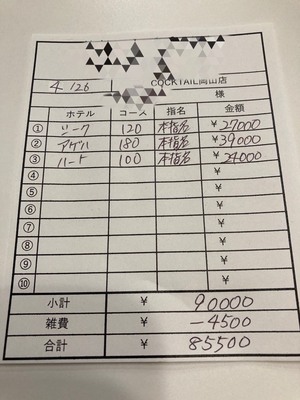 4 126 COCKTAIL岡山店
様
ホテル コース 指名 金額
① シーク 120 本指名 ¥27000
② アゲハ 180 本指名 ¥39000
③ ハート 100 本指名 ¥24000
④ ¥
⑤ ¥
⑥ ¥
⑦ ¥
⑧ ¥
⑨ ¥
⑩ ¥
小計 ¥ 90000
雑費 ¥ -4500
合計 ¥ 85500